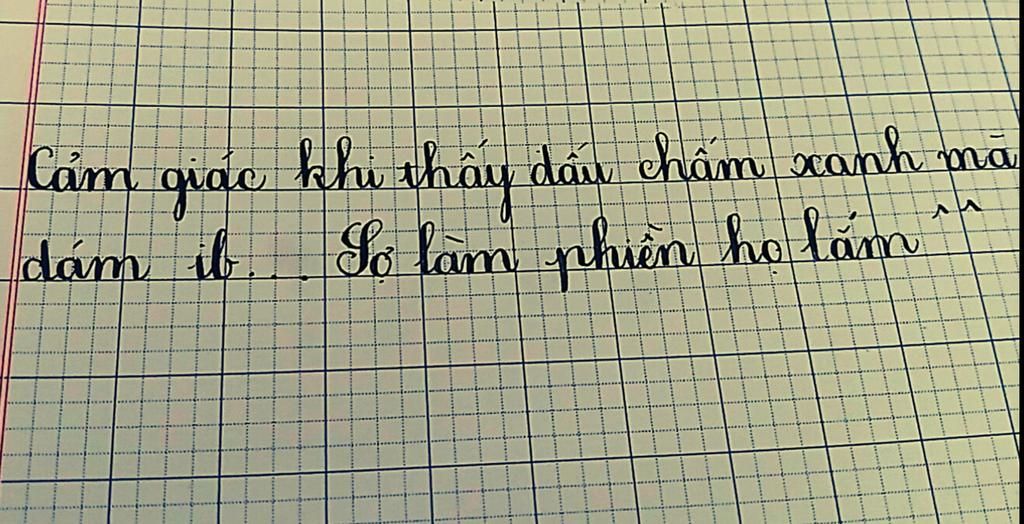 Cảm giác khi thấy dấu chấm xanh mà
dám ib... Sợ làm phiền họ lắm ^^